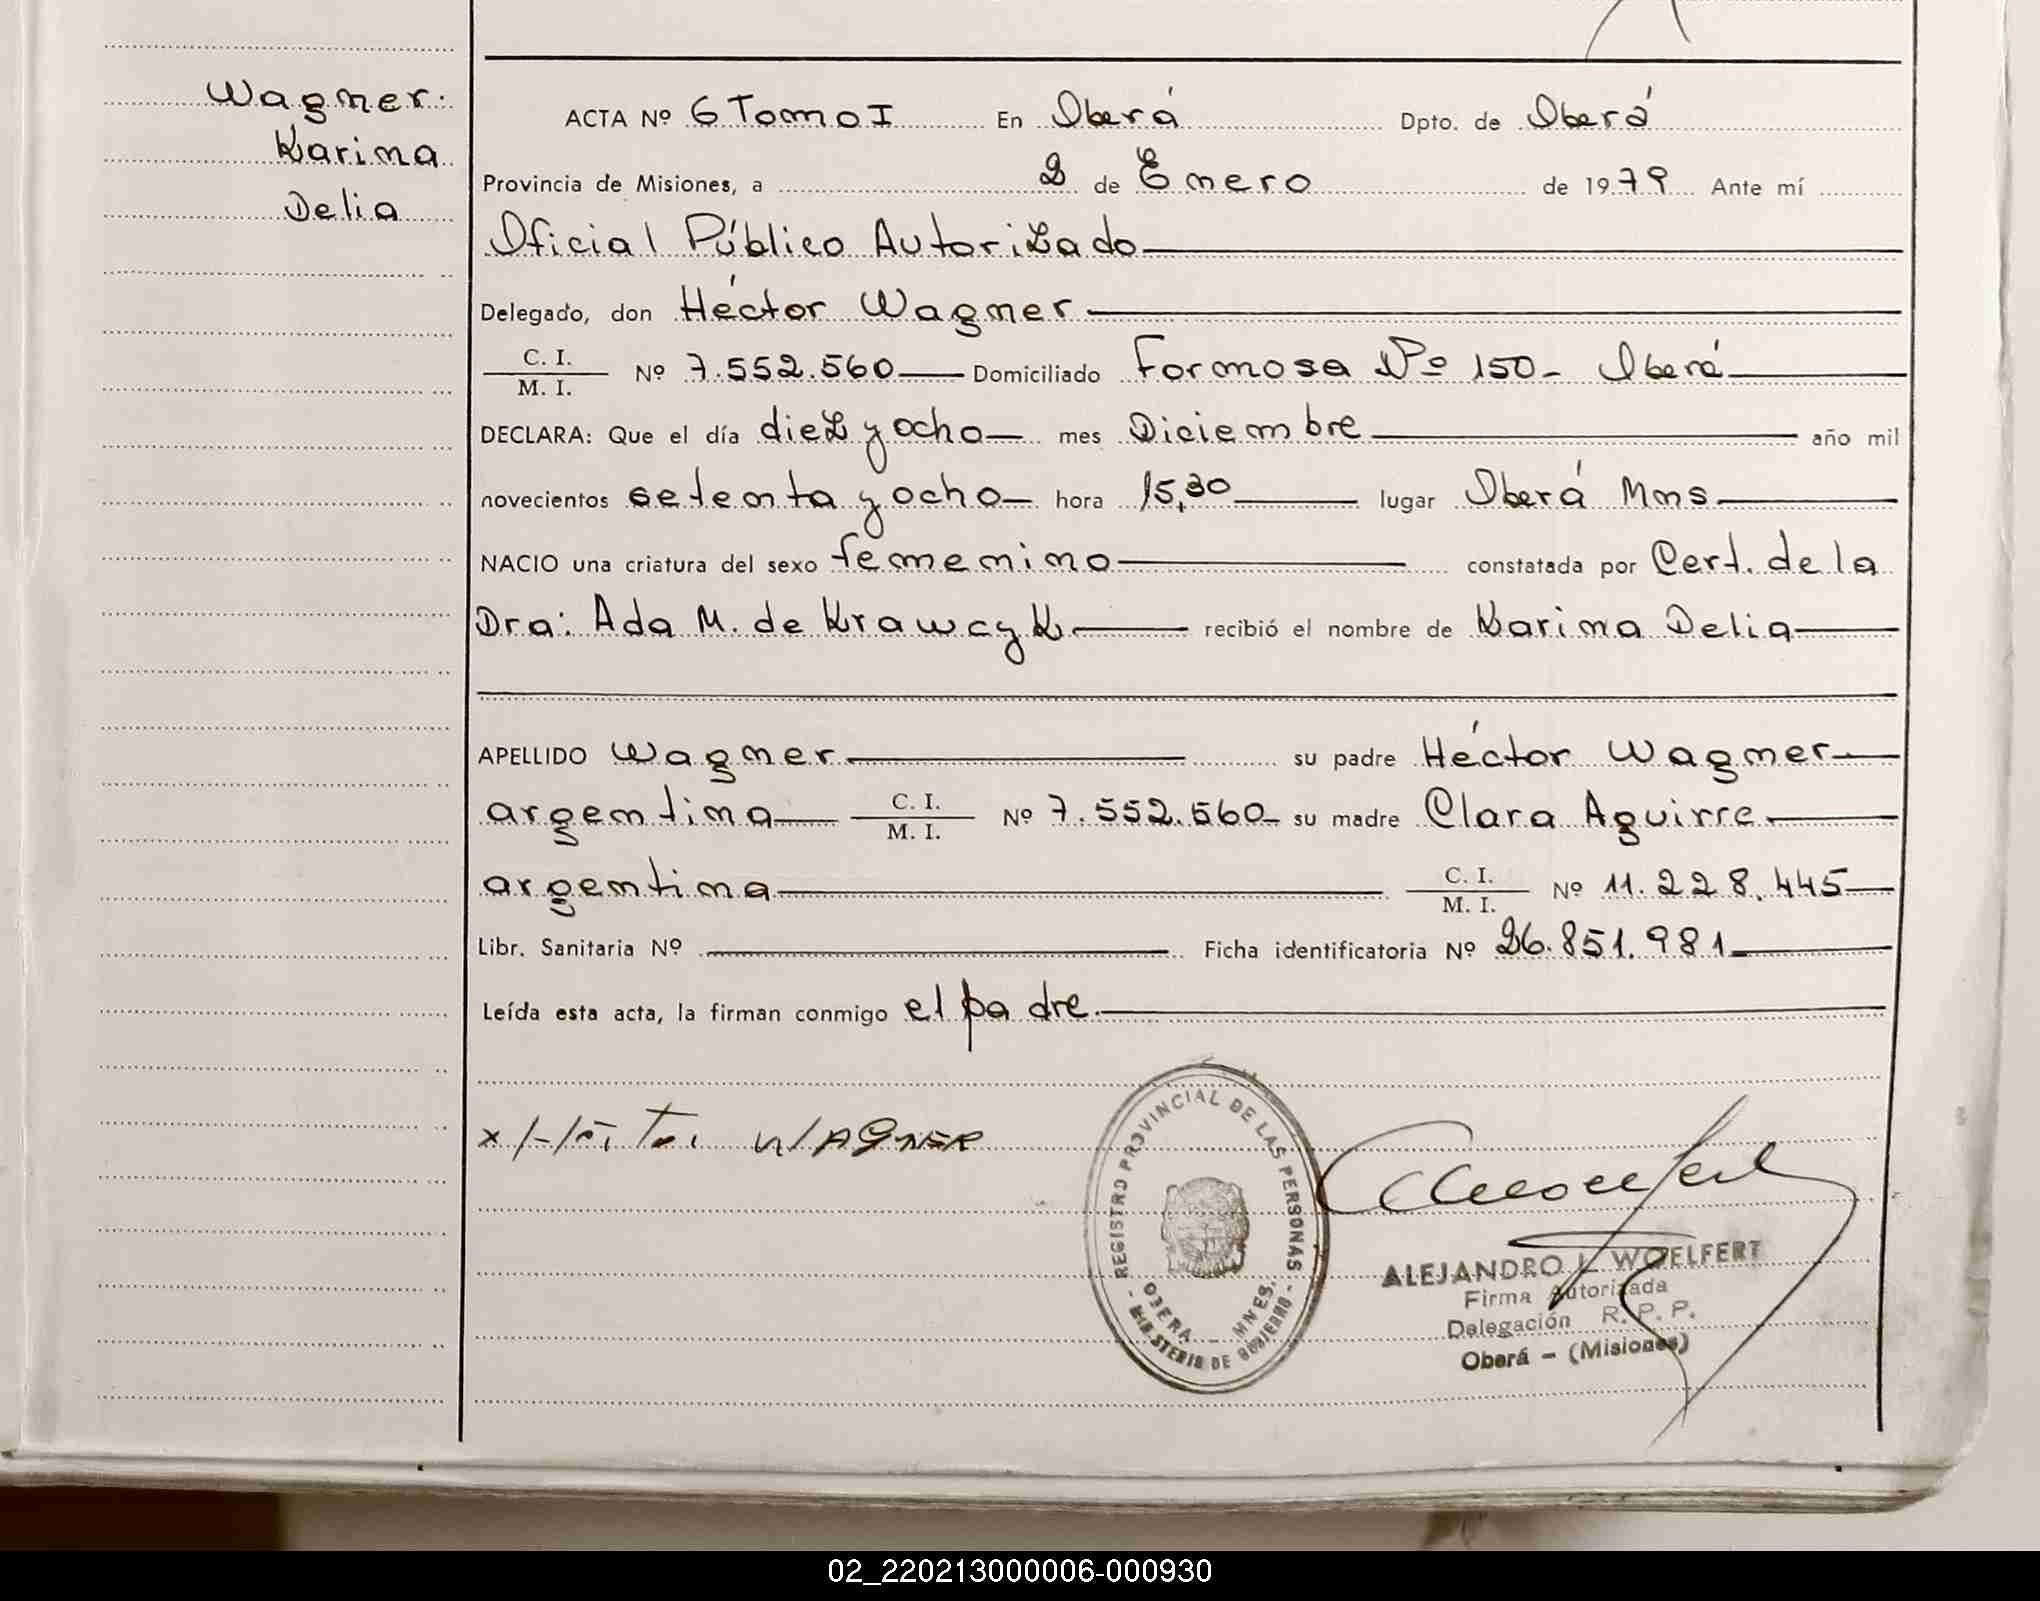 Wagner:
Karina
Delia
ACTA Nº 6 Tomo I En Oberá Dpto. de Oberá
Provincia de Misiones, a 2 de Enero de 1979 Ante mí
Oficial Público Autorizado
Delegado, don Héctor Wagner
C. I.
M. I. Nº 7.552.560 Domiciliado Formosa Nº 150- Oberá
DECLARA: Que el día diez y ocho mes Diciembre año mil
novecientos setenta y ocho hora 15,30 lugar Oberá Mns
NACIO una criatura del sexo femenino constatada por Cert. de la
Dra: Ada M. de Krawcyk. recibió el nombre de Karina Delia
APELLIDO Wagner su padre Héctor Wagner
argentina C. I.
M. I. Nº 7.552.560 su madre Clara Aguirre
argentina C. I.
M. I. Nº 11.228.445
Libr. Sanitaria Nº Ficha identificatoria Nº 26.851.981
Leída esta acta, la firman conmigo el padre
x Héctor WAGNER
- REGISTRO PROVINCIAL DE LAS PERSONAS -
OBERA - MNES.
MINISTERIO DE GOBIERNO
ALEJANDRO L. WOELFERT
Firma Autorizada
Delegación R. P. P.
Oberá - (Misiones)
02_220213000006-000930